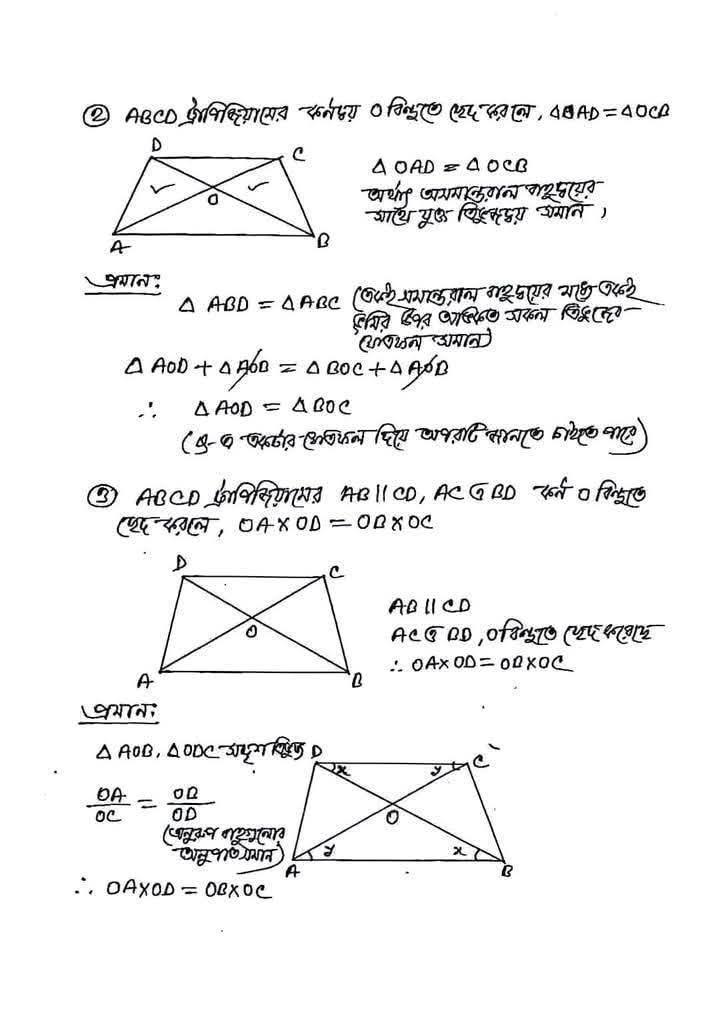 ② ABCD ট্রাপিজিয়ামের কর্ণদ্বয় O বিন্দুতে ছেদ করলে, △OAD = △OCB
D
C
O
A
B
△ OAD = △ OCB
অর্থাৎ অসমান্তরাল বাহুদ্বয়ের
সাথে যুক্ত ত্রিভুজদ্বয় সমান,
প্রমান:
△ ABD = △ ABC (একই সমান্তরাল বাহুদ্বয়ের মধ্যে একই
ভূমির উপর অঙ্কিত সকল ত্রিভুজের
ক্ষেত্রফল সমান)
△ AOD + △ AOB = △ BOC + △ AOB
∴ △ AOD = △ BOC
একটার ক্ষেত্রফল দিয়ে অপরটি জানতে চাইতে পারে)
③ ABCD ট্রাপিজিয়ামের AB || CD, AC ও BD কর্ণ O বিন্দুতে
ছেদ করলে, OA × OD = OB × OC
D
C
O
A
B
AB || CD
AC ও BD, O বিন্দুতে ছেদ করেছে
∴ OA × OD = OB × OC
প্রমান:
△ AOB, △ ODC সদৃশ ত্রিভুজ
OA/OC = OB/OD
(অনুরূপ বাহুগুলোর
অনুপাত সমান)
∴ OA × OD = OB × OC
D
C
x
y
O
y
x
A
B